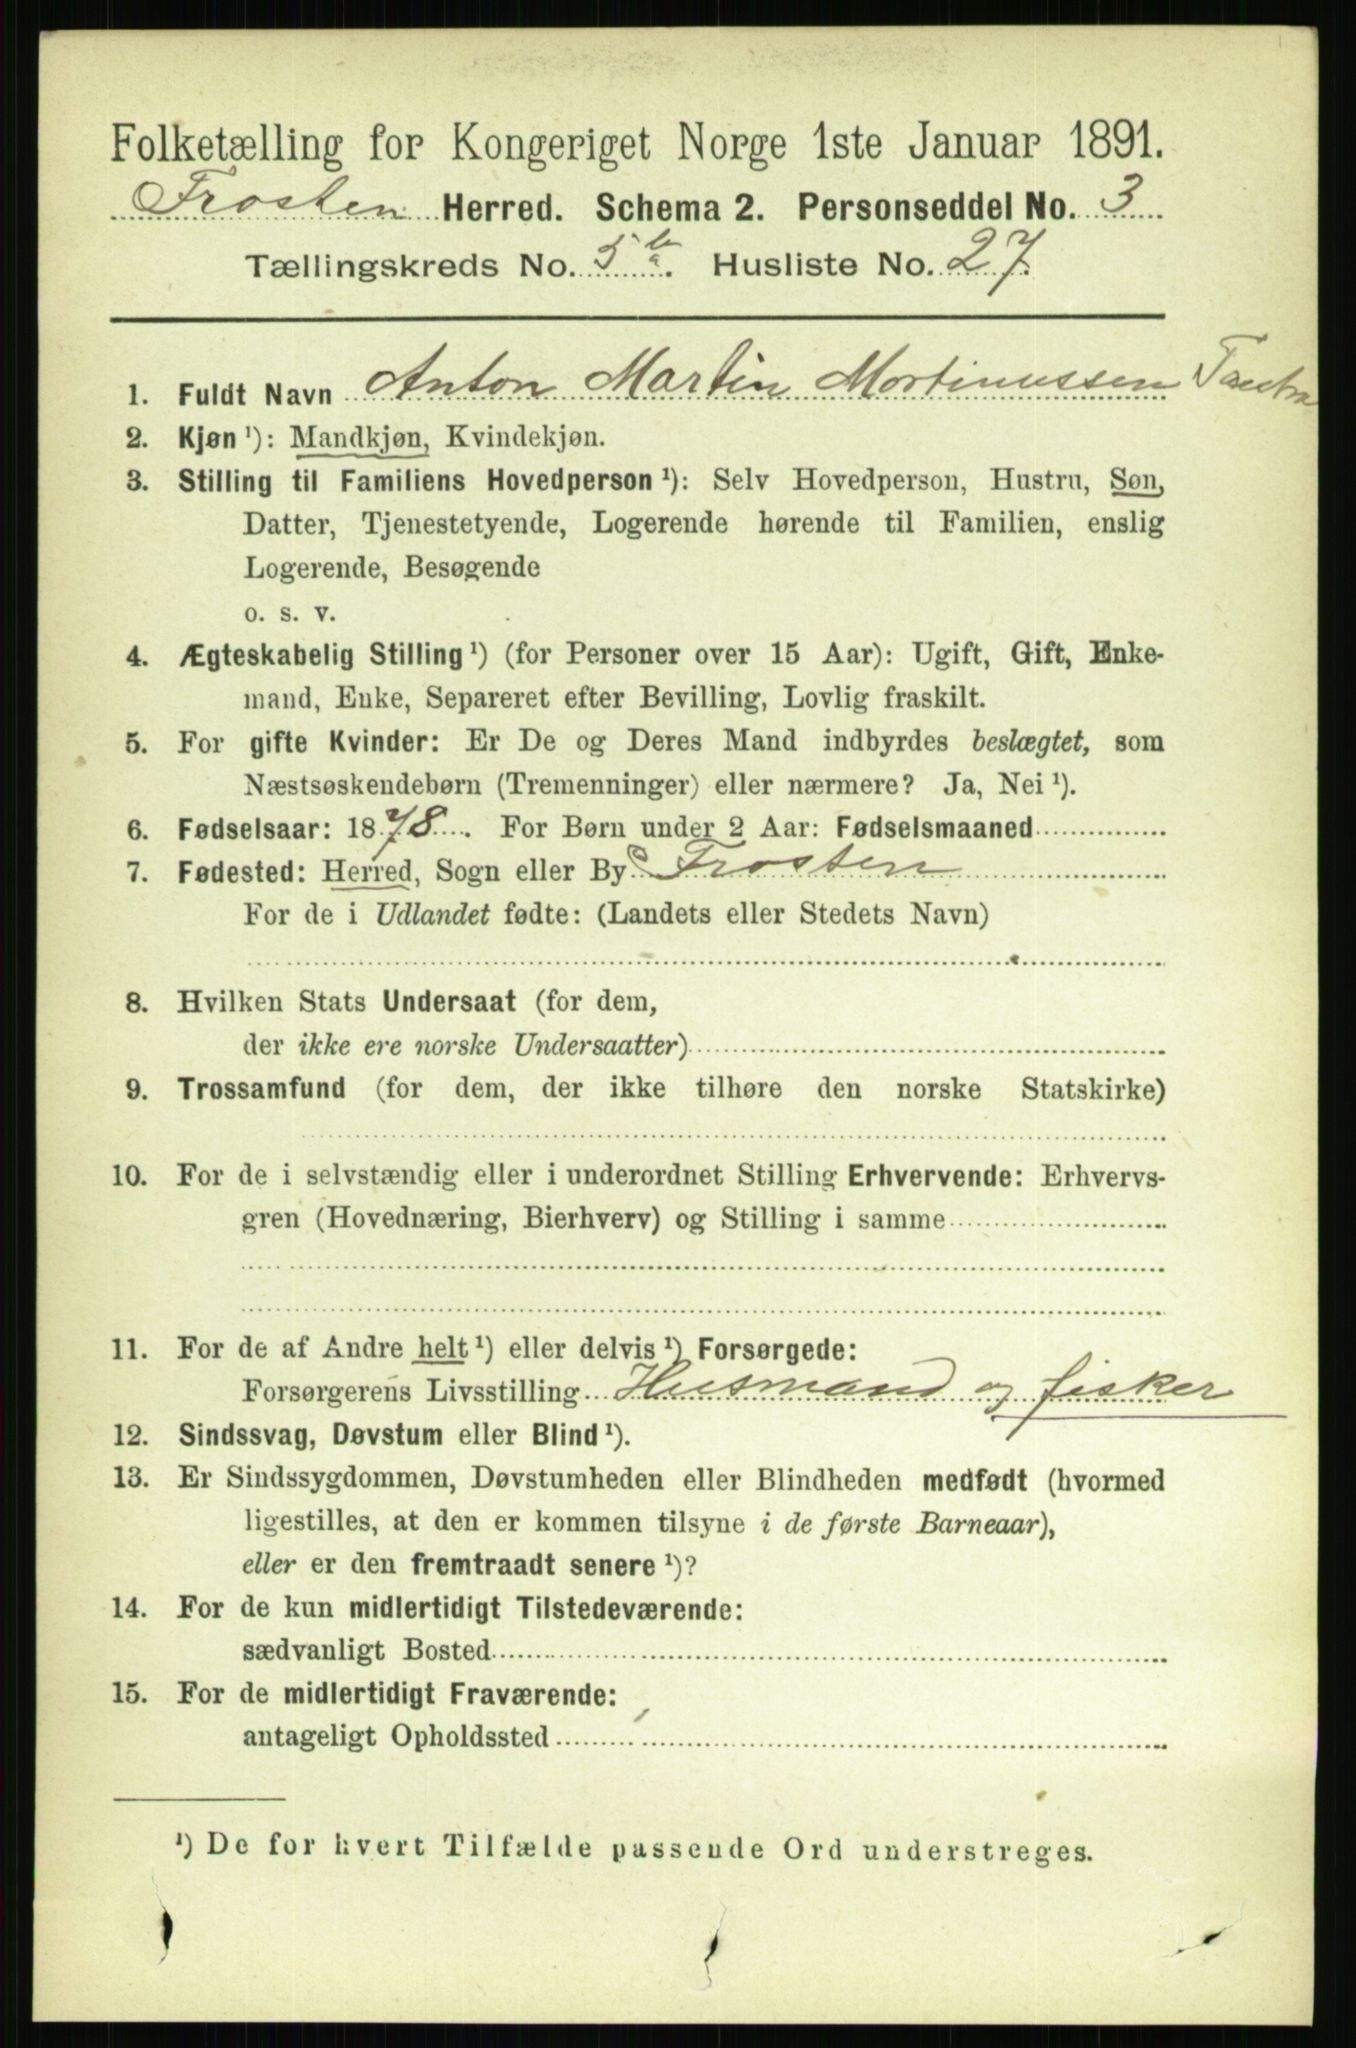 Folketælling for Kongeriget Norge 1ste Januar 1891.
Frosten Herred. Schema 2. Personseddel No. 3
Tællingskreds No. 5te. Husliste No. 27.
1. Fuldt Navn Anton Martin Mortinussen Tautra
2. Kjøn ¹): Mandkjøn, Kvindekjøn.
3. Stilling til Familiens Hovedperson ¹): Selv Hovedperson, Hustru, Søn,
Datter, Tjenestetyende, Logerende hørende til Familien, enslig
Logerende, Besøgende
o. s. v.
4. Ægteskabelig Stilling ¹) (for Personer over 15 Aar): Ugift, Gift, Enke-
mand, Enke, Separeret efter Bevilling, Lovlig fraskilt.
5. For gifte Kvinder: Er De og Deres Mand indbyrdes beslægtet, som
Næstsøskendebørn (Tremenninger) eller nærmere? Ja, Nei ¹).
6. Fødselsaar: 1878. For Børn under 2 Aar: Fødselsmaaned
7. Fødested: Herred, Sogn eller By Frosten
For de i Udlandet fødte: (Landets eller Stedets Navn)
8. Hvilken Stats Undersaat (for dem,
der ikke ere norske Undersaatter)
9. Trossamfund (for dem, der ikke tilhøre den norske Statskirke)
10. For de i selvstændig eller i underordnet Stilling Erhvervende: Erhvervs-
gren (Hovednæring, Bierhverv) og Stilling i samme
11. For de af Andre helt ¹) eller delvis ¹) Forsørgede:
Forsørgerens Livsstilling Husmand og fisker
12. Sindssvag, Døvstum eller Blind ¹).
13. Er Sindssygdommen, Døvstumheden eller Blindheden medfødt (hvormed
ligestilles, at den er kommen tilsyne i de første Barneaar),
eller er den fremtraadt senere ¹)?
14. For de kun midlertidigt Tilstedeværende:
sædvanligt Bosted
15. For de midlertidigt Fraværende:
antageligt Opholdssted
¹) De for hvert Tilfælde passende Ord understreges.